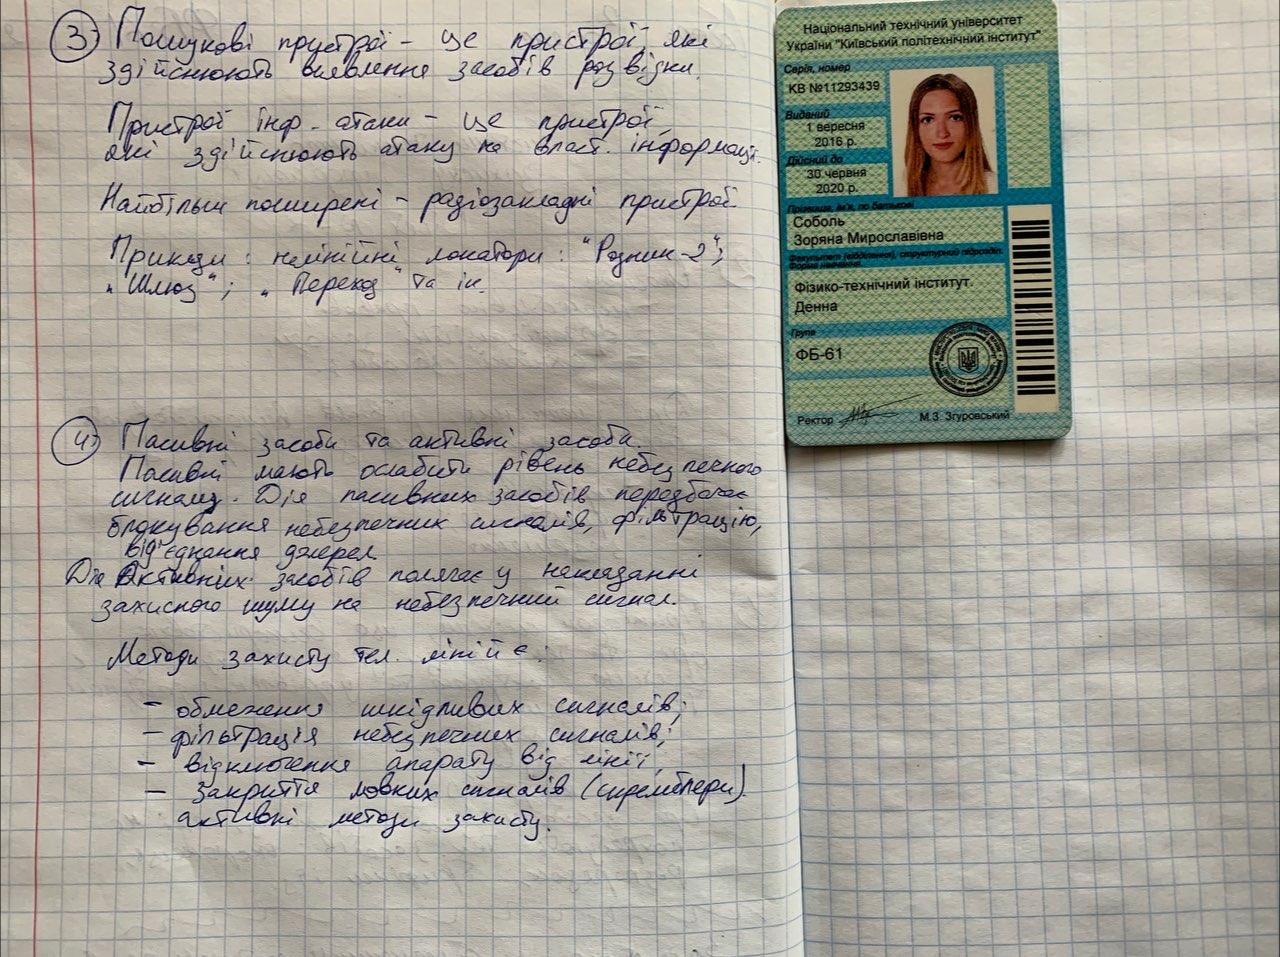 3) Пошукові пристрої – це пристрої, які
здійснюють виявлення засобів розвідки.
Пристрої інф. атаки – це пристрої,
які здійснюють атаку на власт. інформації.
Найбільш поширені – радіозакладні пристрої.
Приклади: нелінійні локатори: "Родник-2";
"Шлюз"; "Переход" та ін.
4) Пасивні засоби та активні засоби.
Пасивні мають ослабити рівень небезпечного
сигналу. Дія пасивних засобів передбачає
блокування небезпечних сигналів, фільтрацію,
від'єднання джерел.
Дія активних засобів полягає у накладанні
захисного шуму на небезпечний сигнал.
Методи захисту тел. ліній є:
– обмеження шкідливих сигналів;
– фільтрація небезпечних сигналів;
– відключення апарату від лінії,
– закриття мовних сигналів (скремблери)
активні методи захисту.
Національний технічний університет
України "Київський політехнічний інститут"
Серія, номер
КВ №11293439
Виданий
1 вересня
2016 р.
Дійсний до
30 червня
2020 р.
Прізвище, ім'я, по батькові
Соболь
Зоряна Мирославівна
Факультет (відділення), структурний підрозділ.
Форма навчання
Фізико-технічний інститут.
Денна
Група
ФБ-61
Ректор
М.З. Згуровський